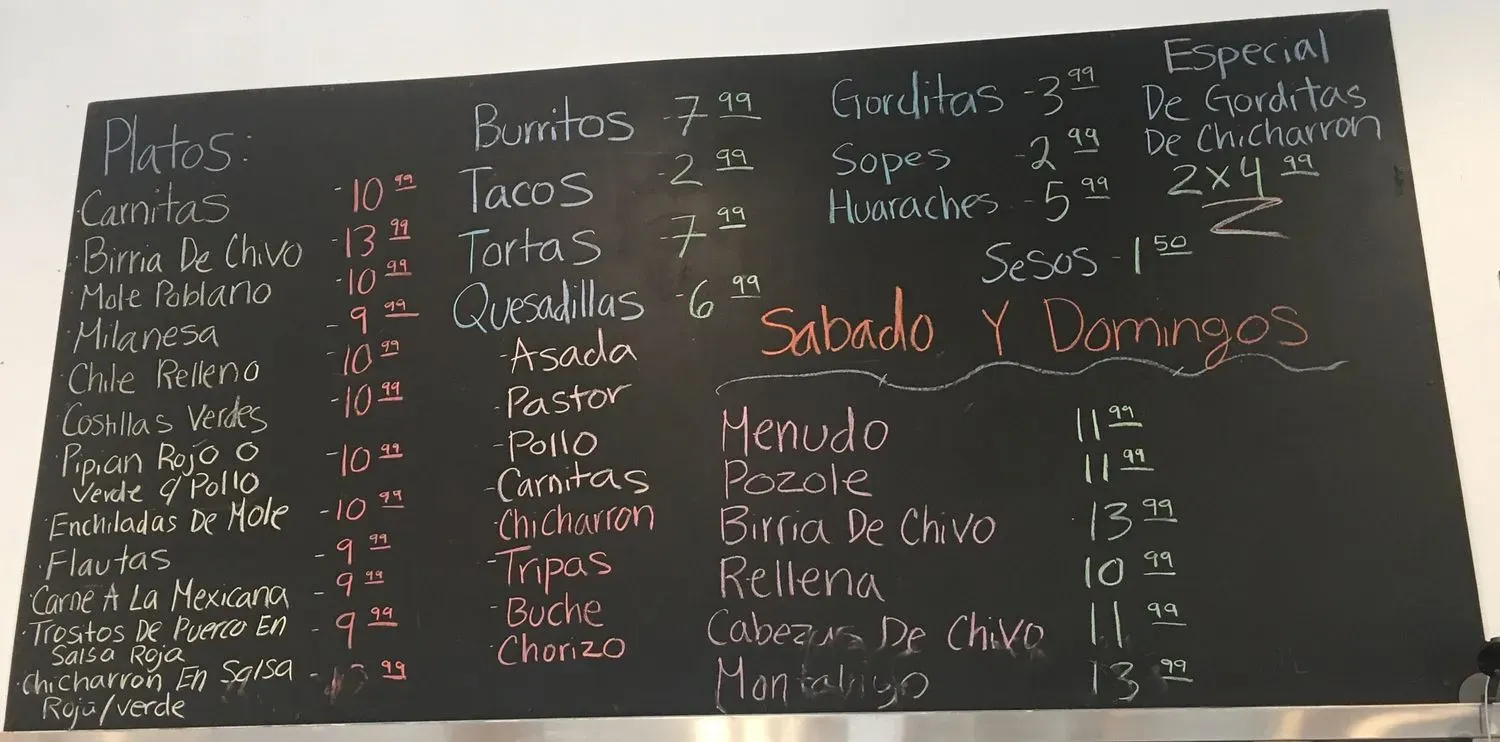 Platos:
·Carnitas -10 99
·Birria De Chivo -13 99
·Mole Poblano -10 99
·Milanesa - 9 99
·Chile Relleno -10 99
·Costillas Verdes -10 99
·Pipian Rojo O
Verde c/ Pollo -10 99
·Enchiladas De Mole -10 99
·Flautas - 9 99
·Carne A La Mexicana - 9 99
·Trositos De Puerco En - 9 99
Salsa Roja
·Chicharron En Salsa - 99
Roja/verde
Burritos -7 99
Tacos -2 99
Tortas -7 99
Quesadillas -6 99
-Asada
-Pastor
-Pollo
-Carnitas
-Chicharron
-Tripas
-Buche
-Chorizo
Gorditas -3 99
Sopes -2 99
Huaraches -5 99
Especial
De Gorditas
De Chicharron
2x4 99
Sesos -1 50
Sabado Y Domingos
Menudo 11 99
Pozole 11 99
Birria De Chivo 13 99
Rellena 10 99
Cabezas De Chivo 11 99
13 99